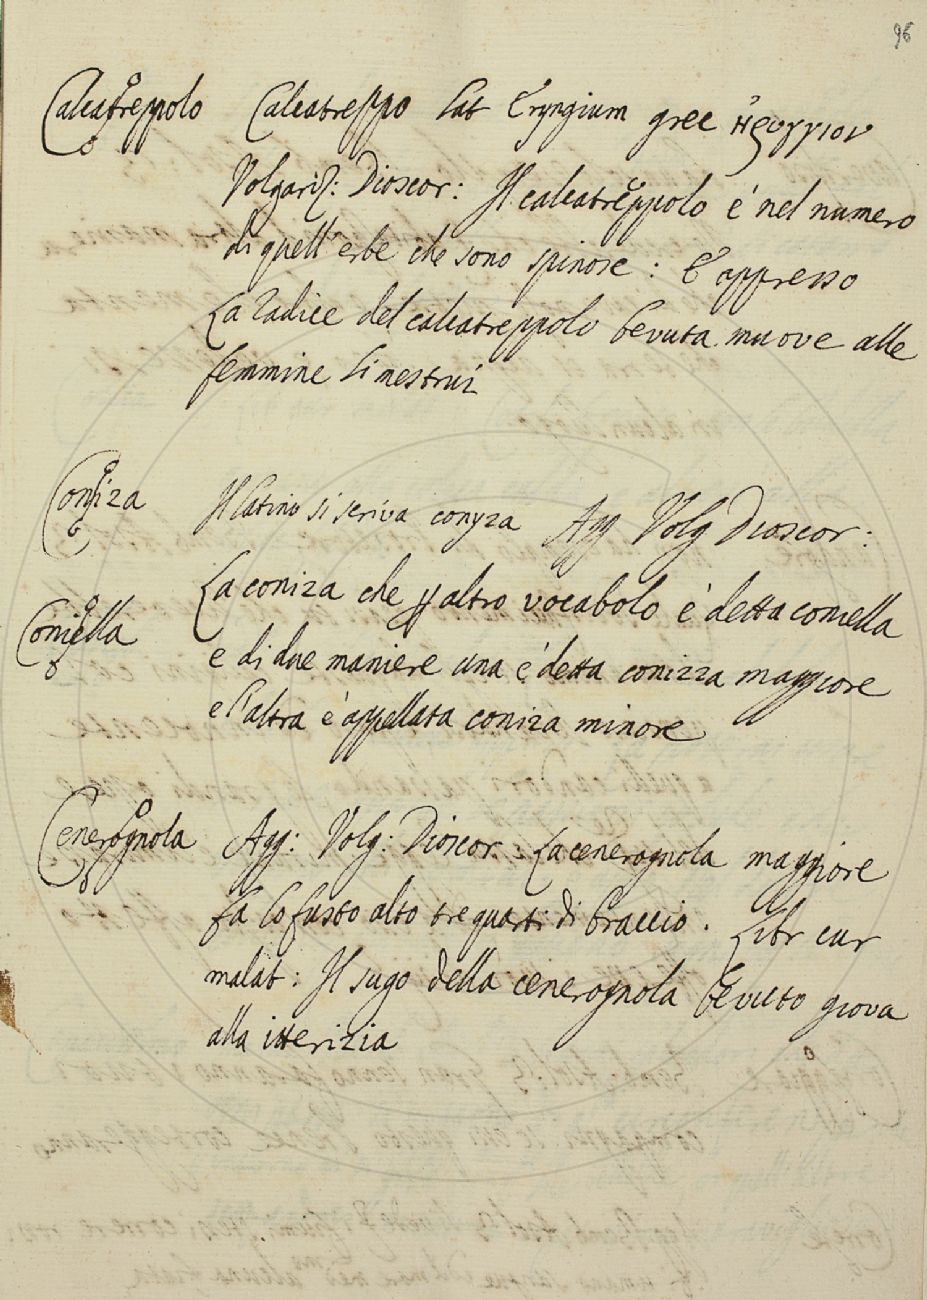 96
Calcatreppolo Calcatreppo Lat Eryngium grec ἠρύγγιον
Volgariz: Dioscor: Il calcatreppolo é nel numero
di quell'erbe che sono spinose: E appresso
La Radice del calcatreppolo bevuta muove alle
femmine li mestrui
Coniza Il latino si scriva conyza Agg Volg Dioscor:
La coniza che p altro vocabolo é detta coniella
Coniella
e di due maniere una é detta conizza maggiore
e l'altra é appellata coniza minore
Cenerognola Agg: Volg: Dioscor La cenerognola maggiore
fa lo fusto alto tre quarti di braccio. Libr cur
malat: Il sugo della cenerognola bevuto giova
alla itterizia